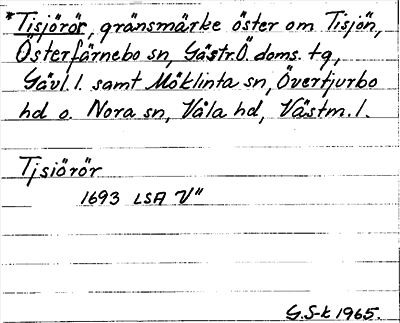 *Tisjörör, gränsmärke öster om Tisjön,
Österfärnebo sn, Gästr.Ö. doms. tg,
Gävl. l. samt Möklinta sn, Övertjurbo
hd o. Nora sn, Våla hd, Västm. l.
Tjsiörör
1693 LSA V"
G.S-k 1965.